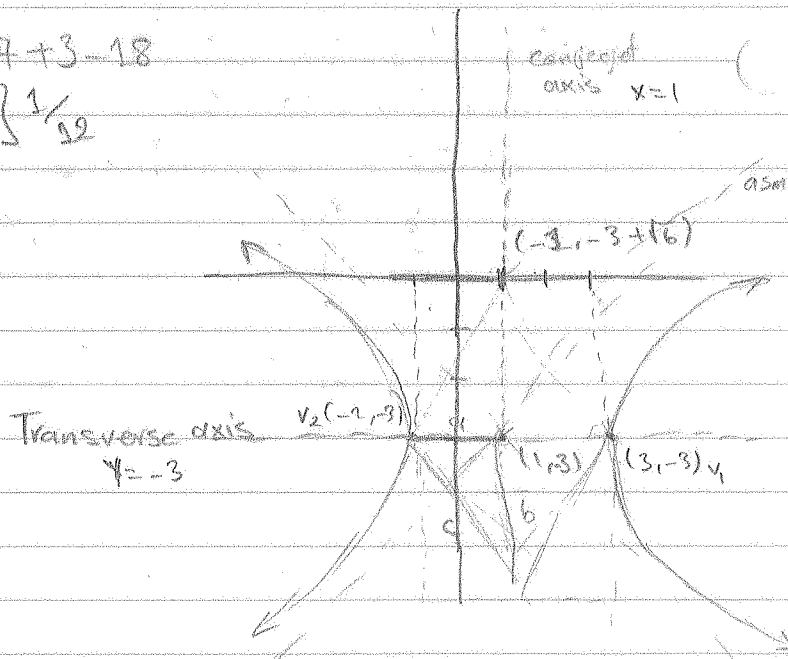 7+3-18
} 1/12
conjecjet
axis x=1
asm
(-1, -3+√6)
Transverse axis
Y=-3
V2(-1,-3)
a
(1,-3)
(3,-3) V1
c
b